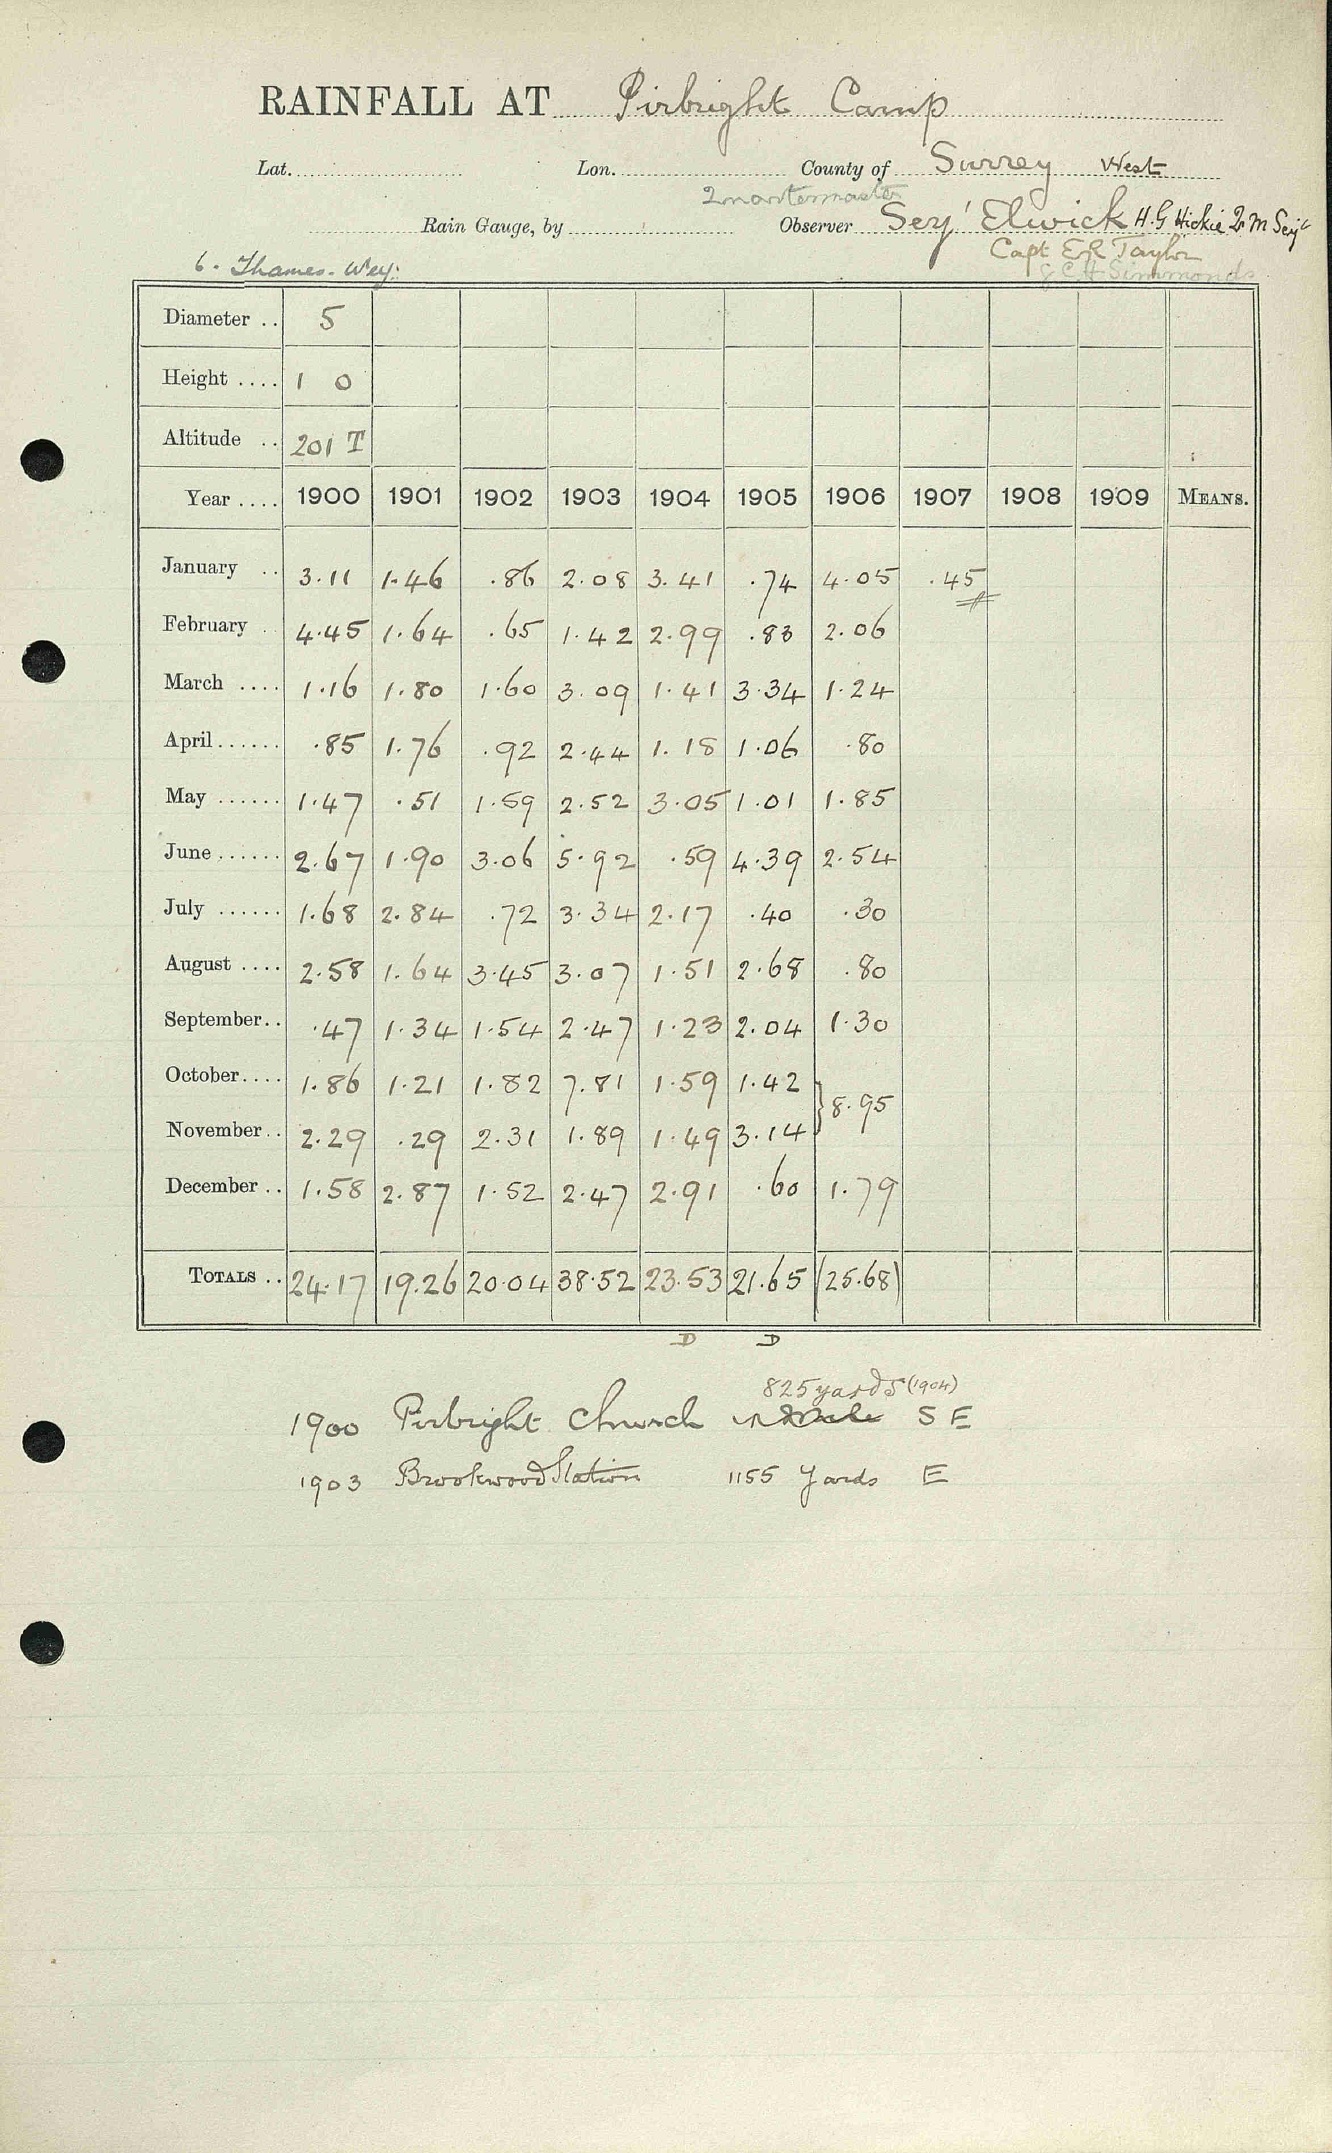 RAINFALL AT Pirbright Camp
Lat. Lon. County of Surrey West
Quartermaster
Rain Gauge, by Observer Serj' Elwick H.G Hickie Qr M Serjt
Capt ER Taylor
& C H Simmonds
6. Thames. Wey:
Diameter .. 5
Height .... 1 0
Altitude .. 201 T
Year .... 1900 1901 1902 1903 1904 1905 1906 1907 1908 1909 MEANS.
January .. 3.11 1.46 .86 2.08 3.41 .74 4.05 .45
February .. 4.45 1.64 .65 1.42 2.99 .83 2.06
March .... 1.16 1.80 1.60 3.09 1.41 3.34 1.24
April ...... .85 1.76 .92 2.44 1.18 1.06 .80
May ...... 1.47 .51 1.59 2.52 3.05 1.01 1.85
June ...... 2.67 1.90 3.06 5.92 .59 4.39 2.54
July ...... 1.68 2.84 .72 3.34 2.17 .40 .30
August .... 2.58 1.64 3.45 3.07 1.51 2.68 .80
September.. .47 1.34 1.54 2.47 1.23 2.04 1.30
October.... 1.86 1.21 1.82 7.81 1.59 1.42 } 8.95
November.. 2.29 .29 2.31 1.89 1.49 3.14
December .. 1.58 2.87 1.52 2.47 2.91 .60 1.79
TOTALS .. 24.17 19.26 20.04 38.52 23.53 21.65 (25.68)
D D
825 yards (1904)
1900 Pirbright Church S E
1903 Brookwood Station 1155 Yards E